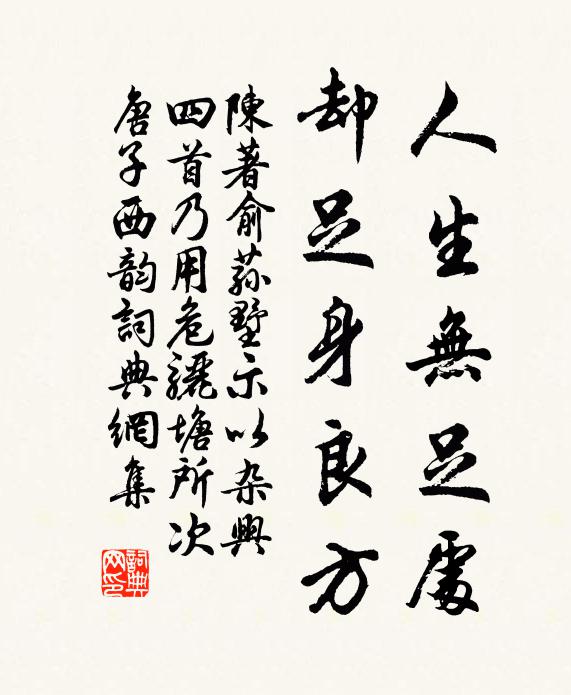 人生無足處
却足身良方
陳著俞蓀墅示以杂興
四首乃用危驪塘所次
唐子西韵詞典網集
詞典网印